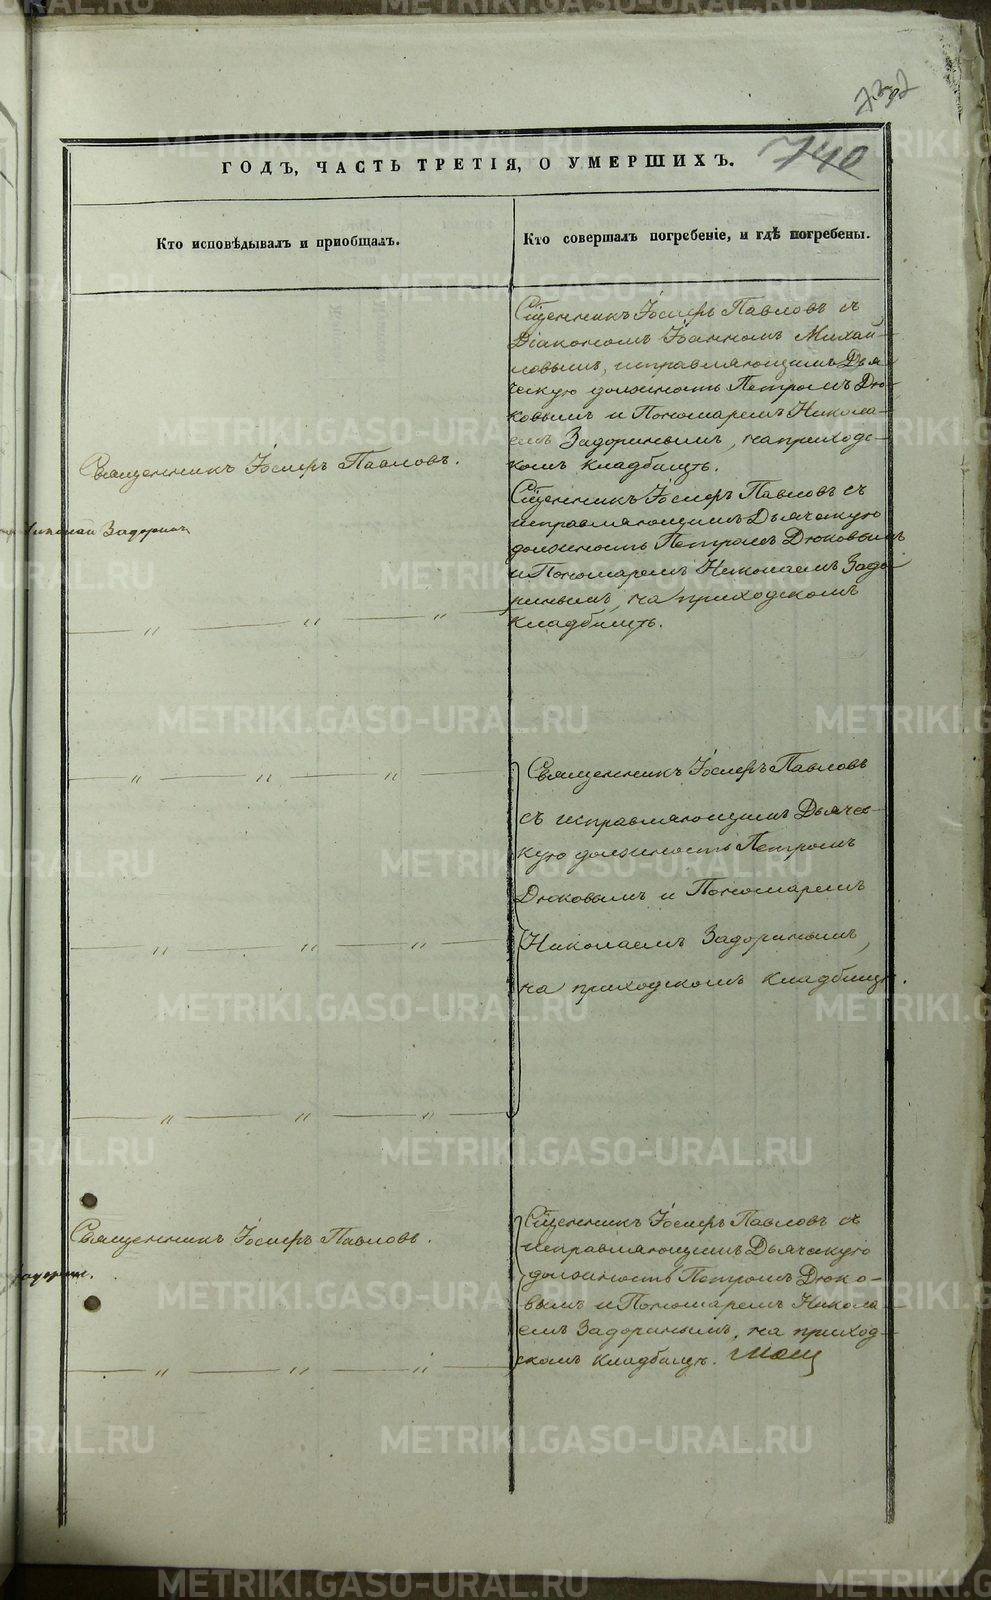 740
ГОДЪ, ЧАСТЬ ТРЕТІЯ, О УМЕРШИХЪ.
Кто исповѣдывалъ и пріобщалъ.
Кто совершалъ погребеніе, и гдѣ погребены.
Священникъ Іосифъ Павловъ.
Николай Задоринъ
" " "
" " "
" " "
" " "
Священникъ Іосифъ Павловъ.
Задорин.
" " "
Сщенникъ Іосифъ Павловъ съ
Діакономъ Іоанномъ Михай-
ловымъ, исправляющимъ Дья-
ческую должность Петромъ Дю-
ковымъ и Пономаремъ Никола-
емъ Задоринымъ, на приходс-
комъ кладбищѣ.
Сщенникъ Іосифъ Павловъ съ
исправляющимъ Дьяческую
должность Петромъ Дюковымъ
и Пономаремъ Николаемъ Задо-
ринымъ, на приходскомъ
кладбищѣ.
Священникъ Іосифъ Павловъ
съ исправляющимъ Дьячес-
кую должность Петромъ
Дюковымъ и Пономаремъ
Николаемъ Задоринымъ,
на приходскомъ кладбищѣ.
Сщенникъ Іосифъ Павловъ съ
исправляющимъ Дьяческую
должность Петромъ Дюко-
вымъ и Пономаремъ Никола-
емъ Задоринымъ, на приход-
скомъ кладбищѣ.
METRIKI.GASO-URAL.RU